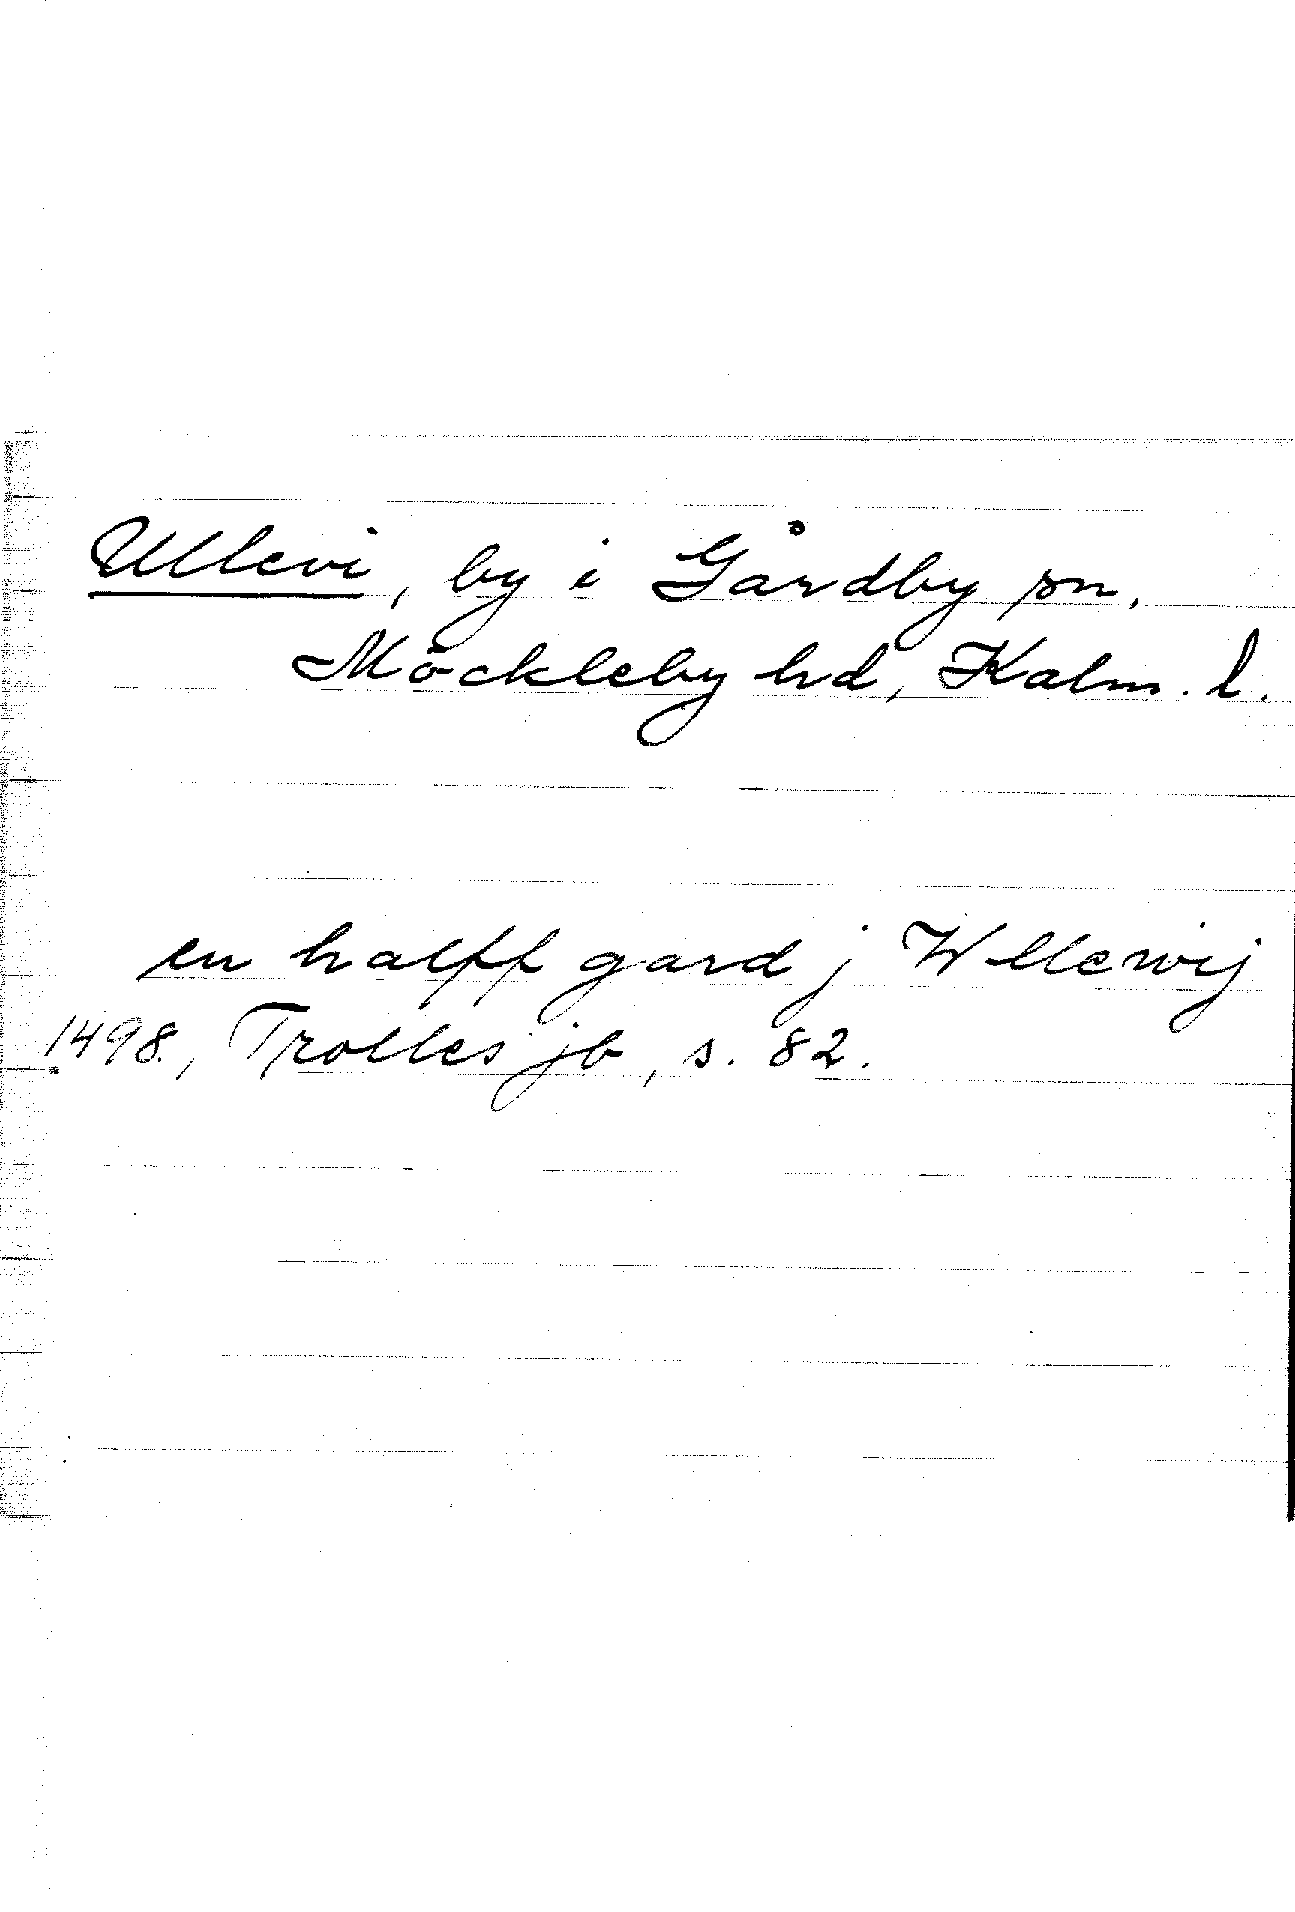 Ullevi, by i Gårdby sn,
Möckleby hd, Kalm. l.
en halff gard j Wllewij
1498., Trolles jb, s. 82.